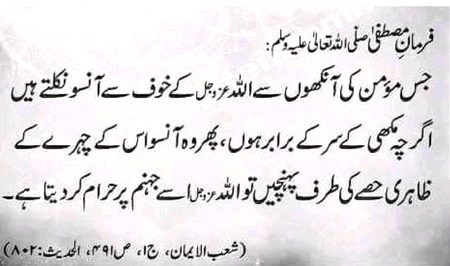 فرمانِ مصطفیٰ صلی اللہ تعالیٰ علیہ وسلم:
جس مؤمن کی آنکھوں سے اللہ عزوجل کے خوف سے آنسو نکلتے ہیں
اگرچہ مکھی کے سر کے برابر ہوں، پھر وہ آنسو اس کے چہرے کے
ظاہری حصے کی طرف پہنچیں تو اللہ عزوجل اسے جہنم پر حرام کر دیتا ہے۔
(شعب الایمان، ج۱، ص۴۹۱، الحدیث:۸۰۲)